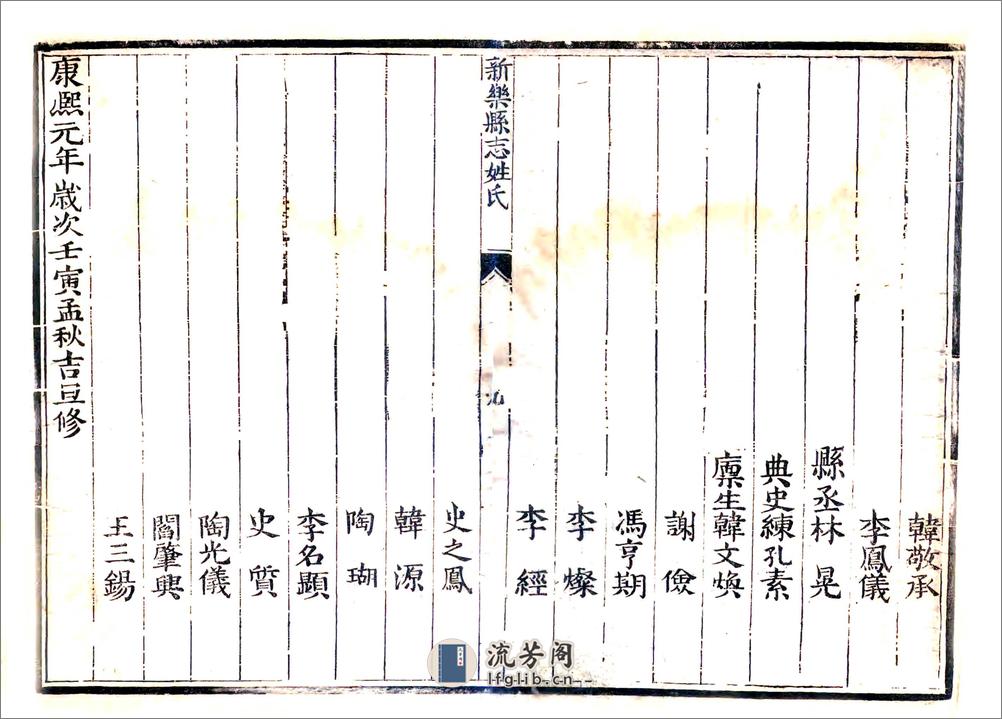 韓敬承
李鳳儀
縣丞林晃
典史練孔素
廪生韓文煥
謝儉
馮亨期
李燦
李經
新樂縣志姓氏
九
史之鳳
韓源
陶瑚
李名顯
史質
陶光儀
閻肇興
王三錫
康熙元年歲次壬寅孟秋吉旦修
流芳阁
lfglib.cn